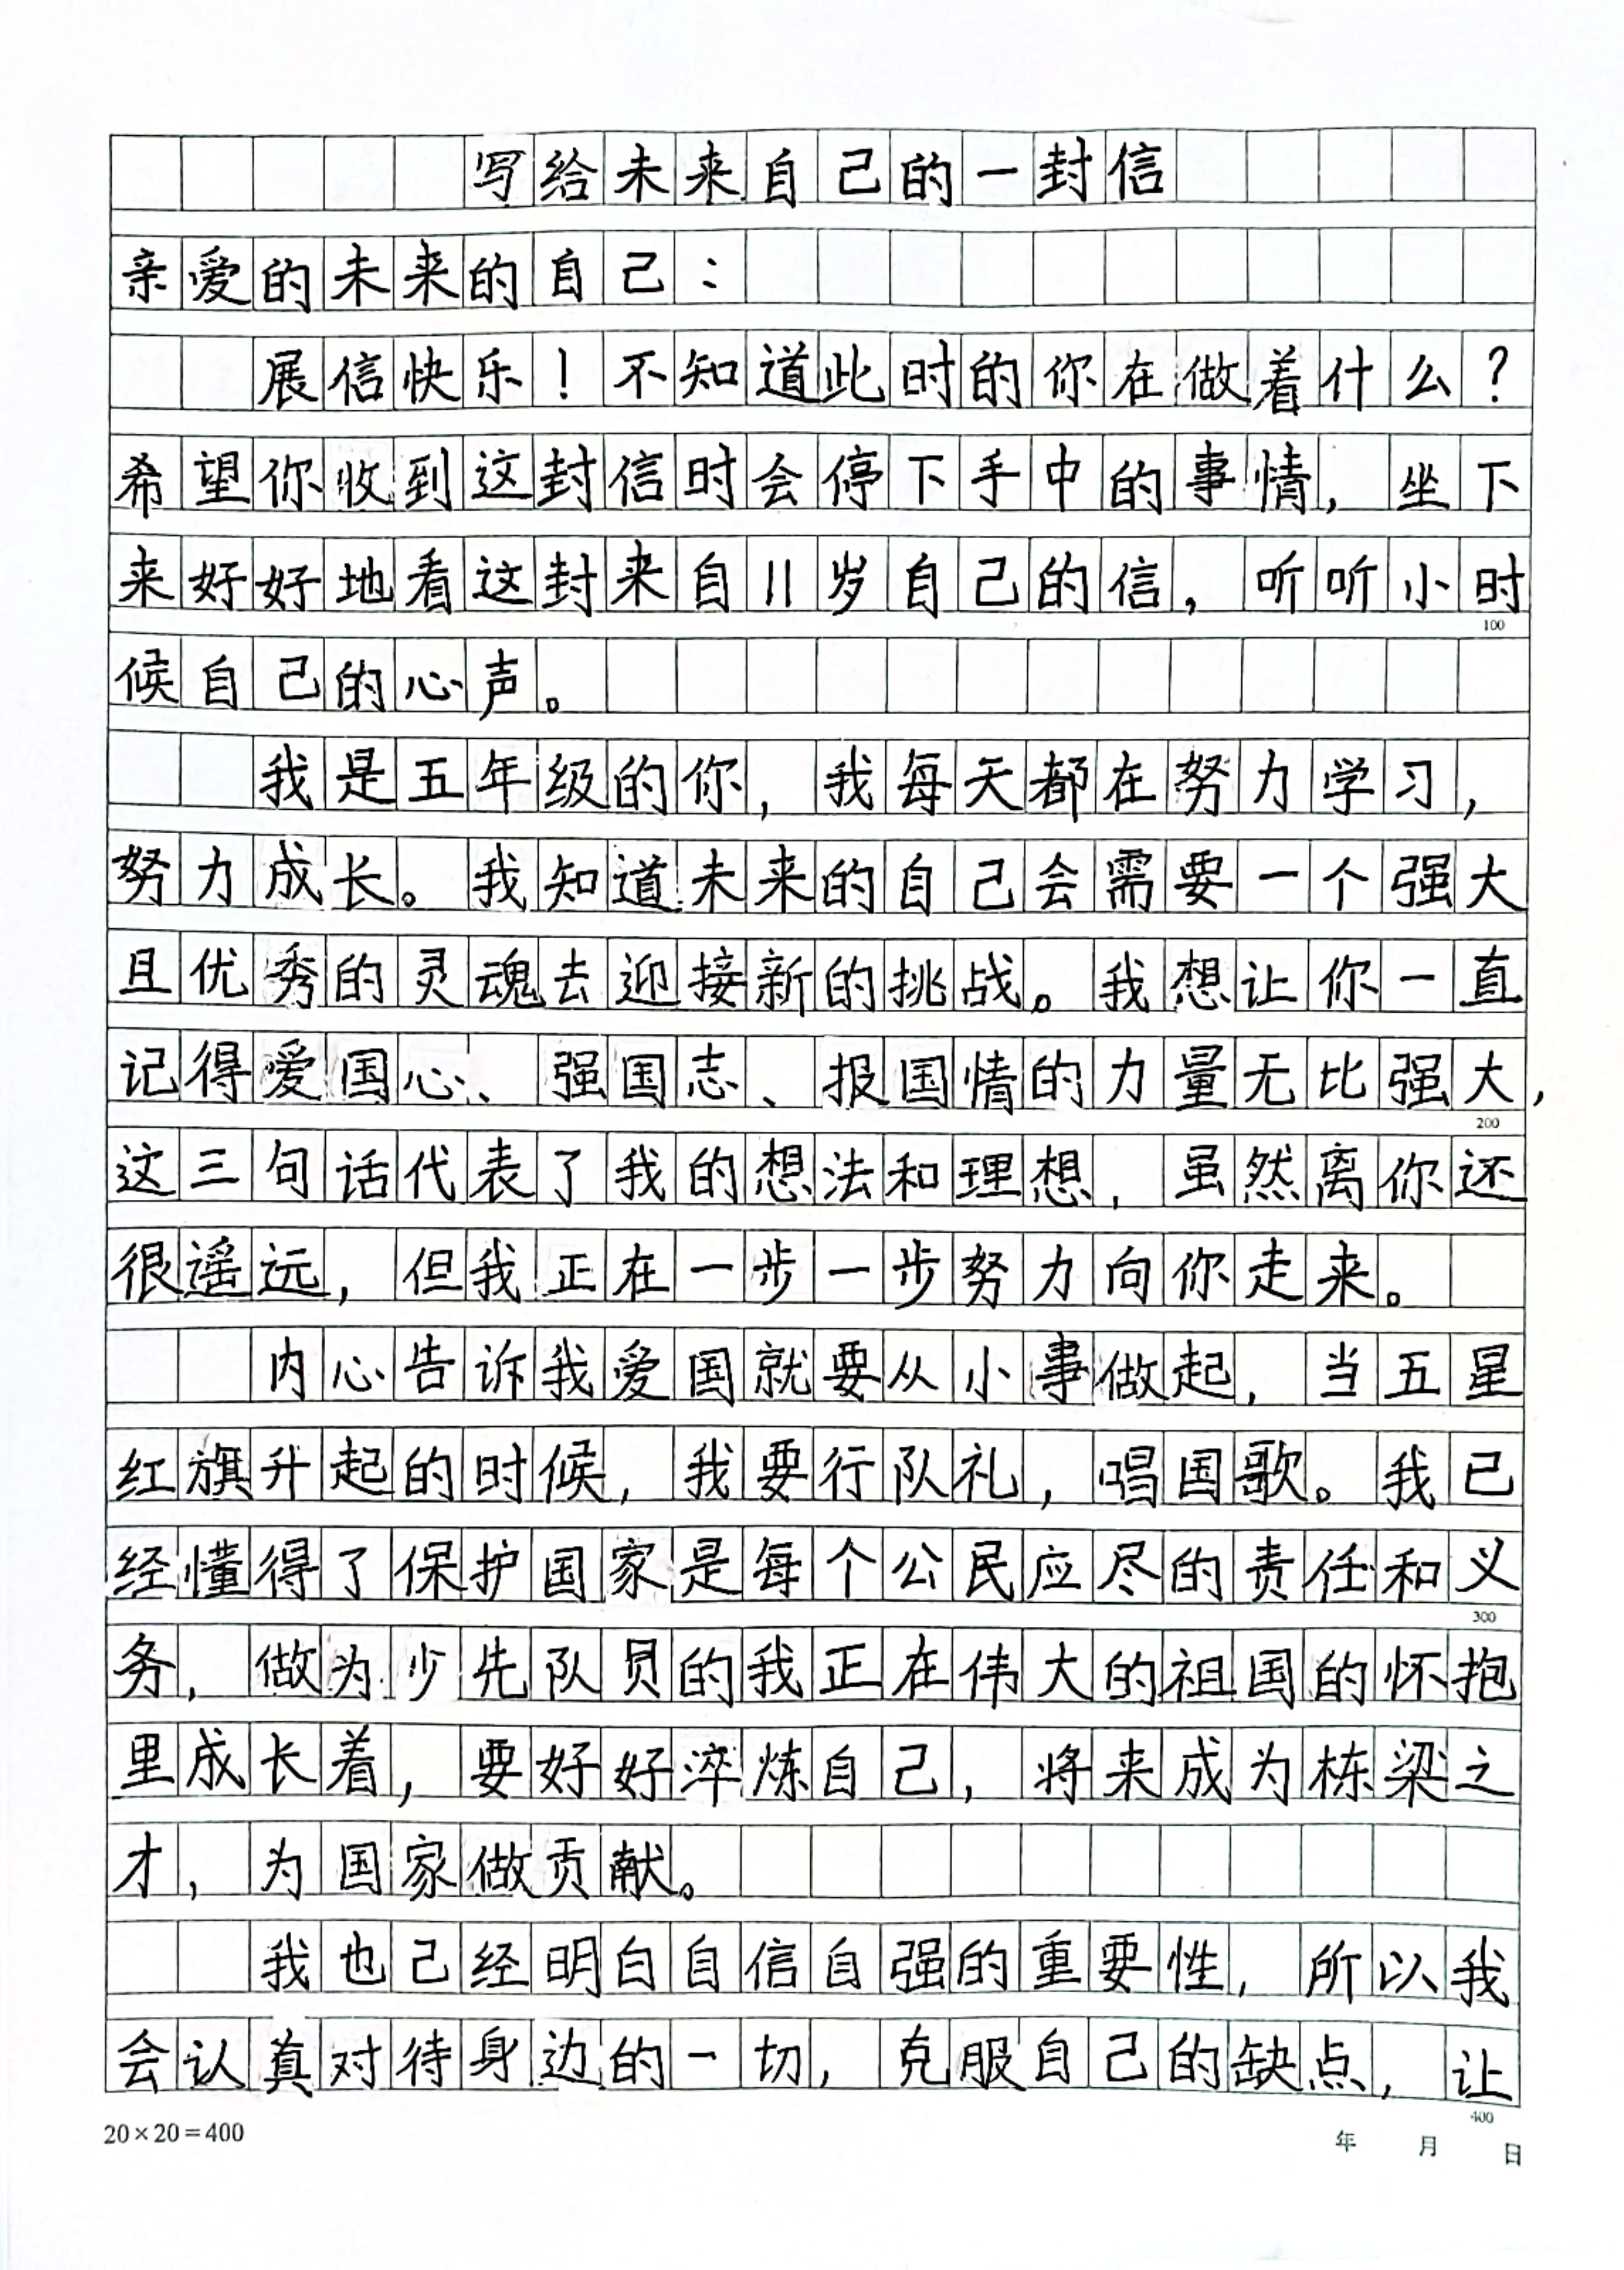 写给未来自己的一封信
亲爱的未来的自己：
展信快乐！不知道此时的你在做着什么？
希望你收到这封信时会停下手中的事情，坐下
来好好地看这封来自11岁自己的信，听听小时
100
候自己的心声。
我是五年级的你，我每天都在努力学习，
努力成长。我知道未来的自己会需要一个强大
且优秀的灵魂去迎接新的挑战。我想让你一直
记得爱国心、强国志、报国情的力量无比强大，
200
这三句话代表了我的想法和理想，虽然离你还
很遥远，但我正在一步一步努力向你走来。
内心告诉我爱国就要从小事做起，当五星
红旗升起的时候，我要行队礼，唱国歌。我已
经懂得了保护国家是每个公民应尽的责任和义
300
务，做为少先队员的我正在伟大的祖国的怀抱
里成长着，要好好淬炼自己，将来成为栋梁之
才，为国家做贡献。
我也己经明白自信自强的重要性，所以我
会认真对待身边的一切，克服自己的缺点，让
400
20×20=400 年 月 日